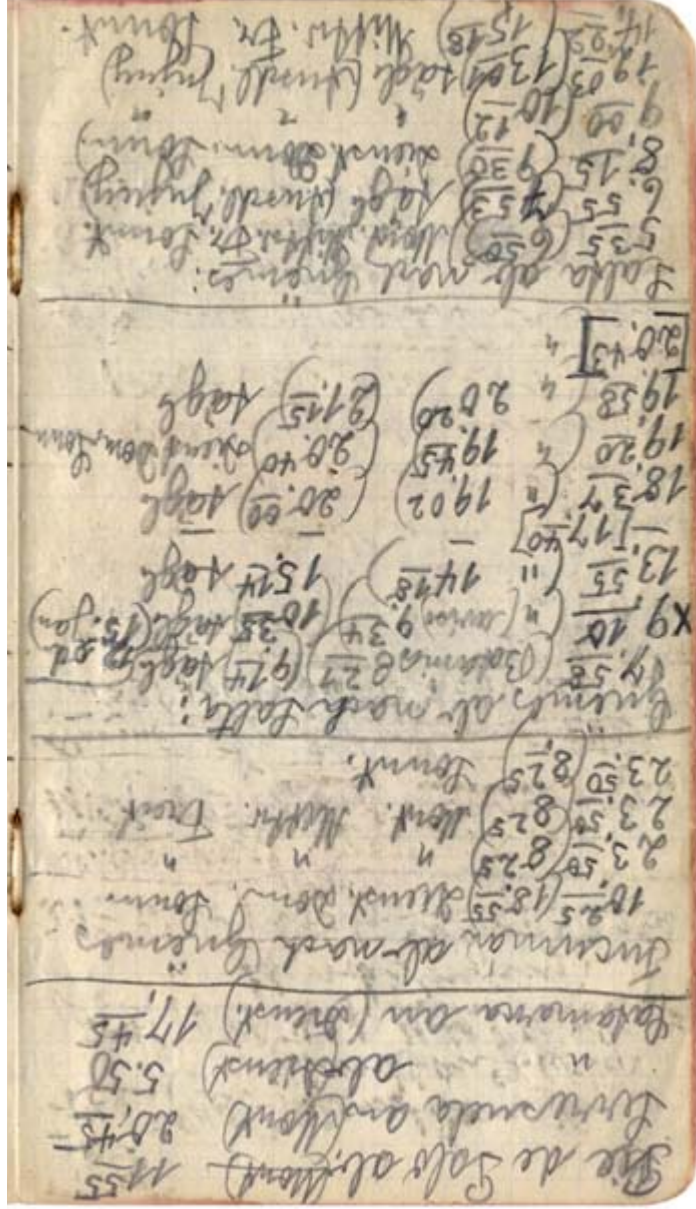 Pie de Palo ab (Mont) 11 55
Serrezuela an (Mont) 20,45
" ab Dienst) 5.50
Catamarca an (Dienst.) 17,45
Tucuman ab nach Güemes
10,25 (18,55) Dienst. Don. Sonn.
23,50 (8 25) " " "
23,50 (8 25) Mont. Mittw. Freit
23,50 (8 25) Sonnt.
Güemes ab nach Salta:
7,58 (Betania 8 27) (9,14) tägl
X 9,10 ( " 9 34) 10 35 tägl. (15. Jan)
13,55 ( " 14 18) 15,14 tägl
– [17,40] – –
18,37 ( " 19,02 (20.00) tägl
19,20 ( " 19,45 (20.40) Dienst Don. Sonn
19,58 ( " 20 20) (21.15) tägl
[20,43] "
Salta ab nach Güemes:
5 35 (6 50) Mont. Mittw. Fr. Sonnt.
6,55 (7 53) tägl
8,15 (9 30) Dienst. Don. Sonn)
9 00 (10 12) " "
12,03 (13 01) tägl
14,02 (15 18) Mittw. Fr. Sonnt.